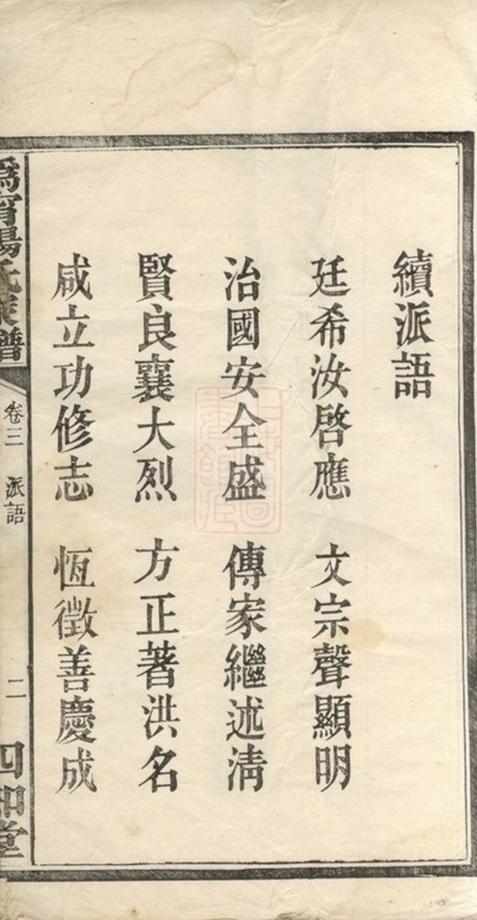 續派語
廷希汝啓應 文宗聲顯明
治國安全盛 傳家繼述清
賢良襄大烈 方正著洪名
咸立功修志 恆徵善慶成
楊氏家譜
卷三 派語
二
四知堂